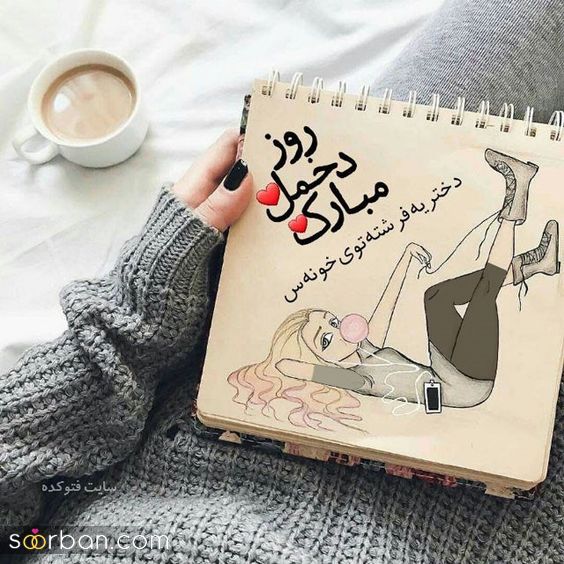 روز
دخمل
مبارک
دختر یه فرشته توی خونه س
سایت فتوکده
soorban.com